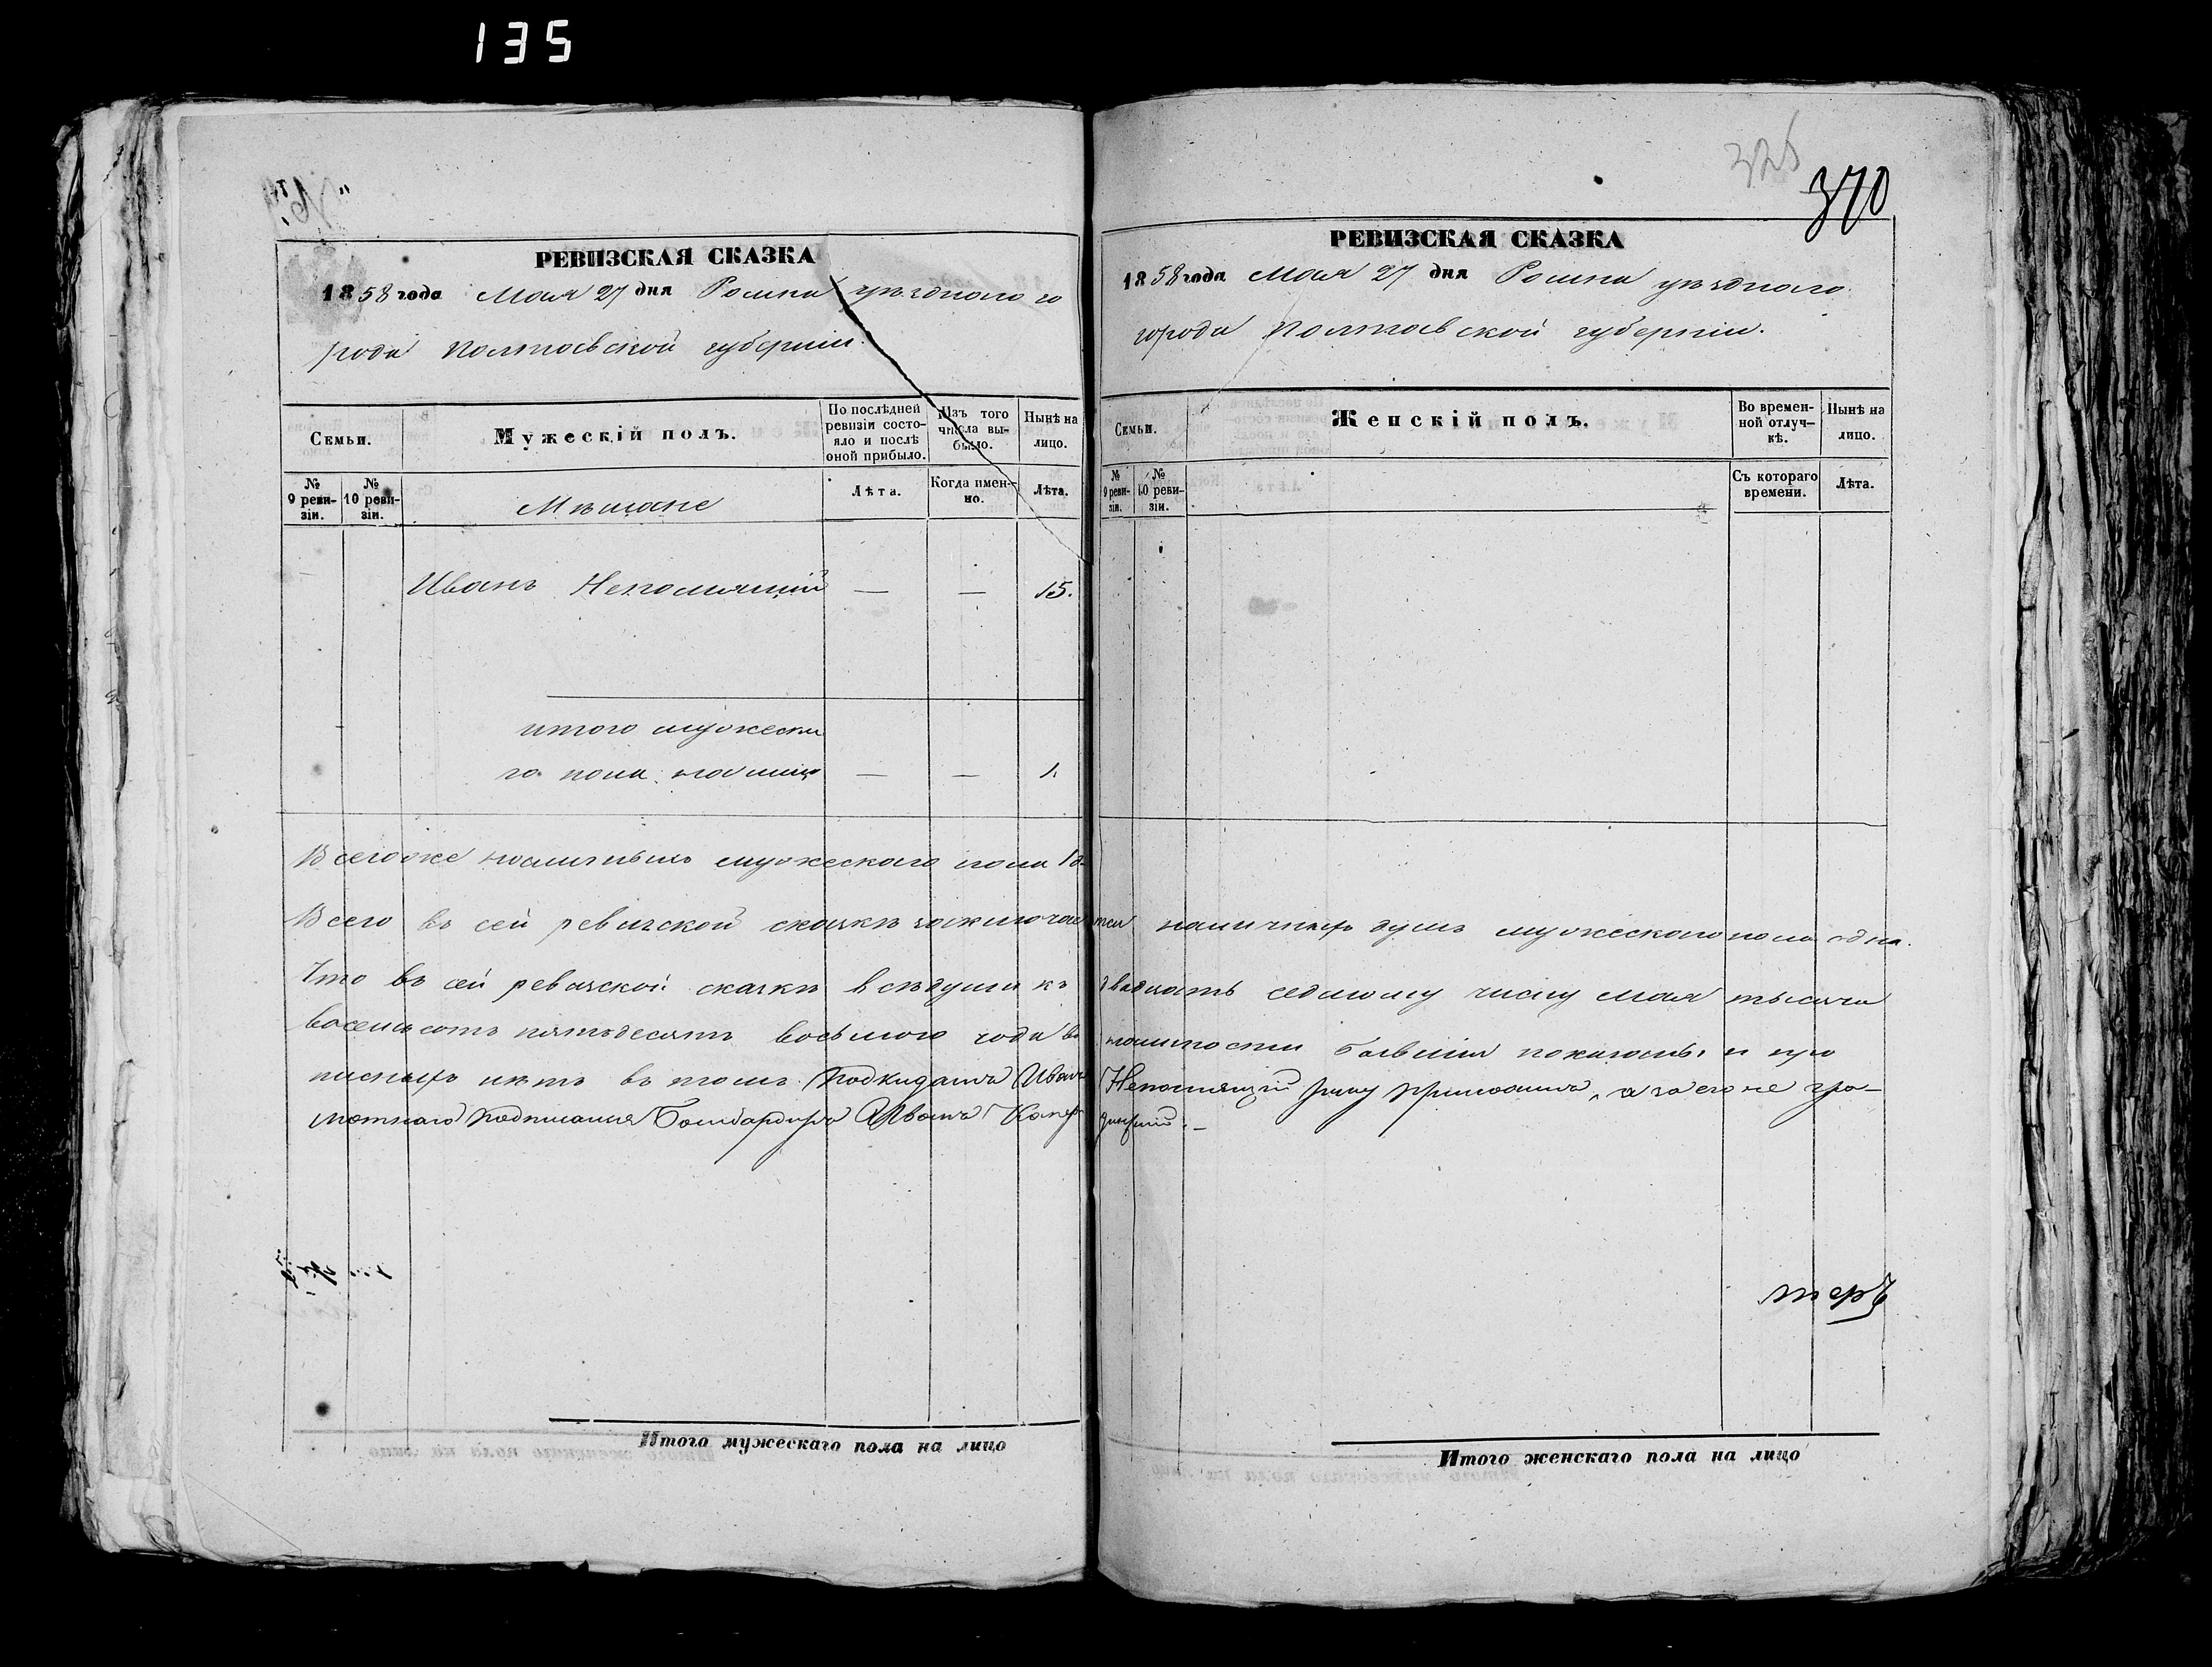 135
326
370
РЕВИЗСКАЯ СКАЗКА
1858 года Мая 27 дня Ромна уѣзднаго го
рода Полтавской губерніи.
Семьи.
Мужескій полъ.
По послѣдней ревизіи состояло и послѣ оной прибыло.
Изъ того числа выбыло.
Нынѣ на лицо.
№ 9 ревизіи.
№ 10 ревизіи.
Мѣщане
Лѣта.
Когда именно.
Лѣта.
Иванъ Непомнящій — — 15.
итого мужеска
го пола на лицо — — 1.
Всего же наличныхъ мужескаго пола 1 д.
РЕВИЗСКАЯ СКАЗКА
1858 года Мая 27 дня Ромна уѣзднаго
города Полтавской губерніи.
Семьи.
Женскій полъ.
Во временной отлучкѣ.
Нынѣ на лицо.
№ 9 ревизіи.
№ 10 ревизіи.
Съ котораго времени.
Лѣта.
Всего въ сей ревизской сказкѣ заключается наличныхъ душъ мужескаго пола одна.
Что въ сей ревизской сказкѣ всѣ души къ двадцать седьмому числу мая тысяча
восемьсотъ пятьдесятъ восьмого года въ наличности бывшія показаны и про
писныхъ нѣтъ въ томъ Подкидышъ Иванъ Непомнящій руку приложилъ, а за его не гра-
мотнаго подписался Бомбардиръ Иванъ
Итого мужескаго пола на лицо
Итого женскаго пола на лицо